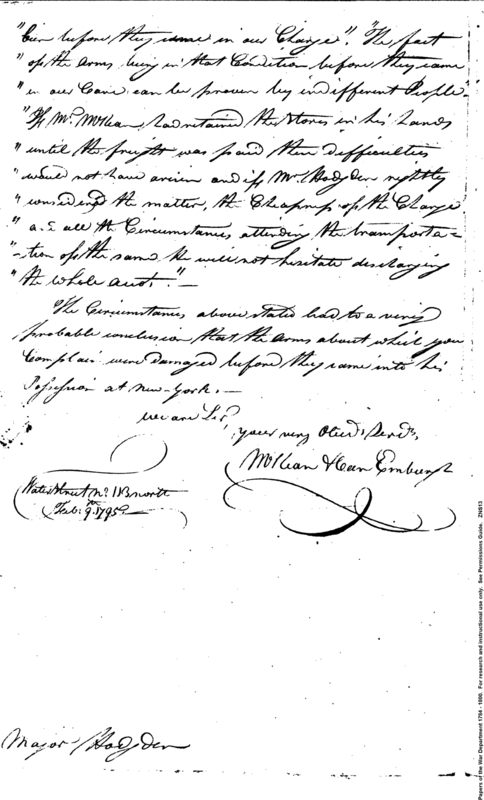 "been before they came in our Charge". "The fact
"of the Arms being in that Condition before they came
"in our Care can be proven by indifferent People -
"If Mr. McKean, had retained the Stores in his hands
"until the freight was paid these difficulties
"would not have arisen and if Mr. Hodgden rightly
"considered the matter, the Cheapness of the Charge
"and all the Circumstances attending the transporta=
"-tion of the same he will not hesitate discharging
"the whole Acct." —
The Circumstances above stated lead to a very
probable conclusion that the Arms about which you
Complain were Damaged before they came into his
Possession at New-York. —
we are Sir,
your very Obed. Servts.
McKean & Van Emburgh
Water Street No. 113 north
Feb: 9th 1795
Major Hodgden
Papers of the War Department 1784 - 1800. For research and instructional use only. See Permissions Guide. ZNB13